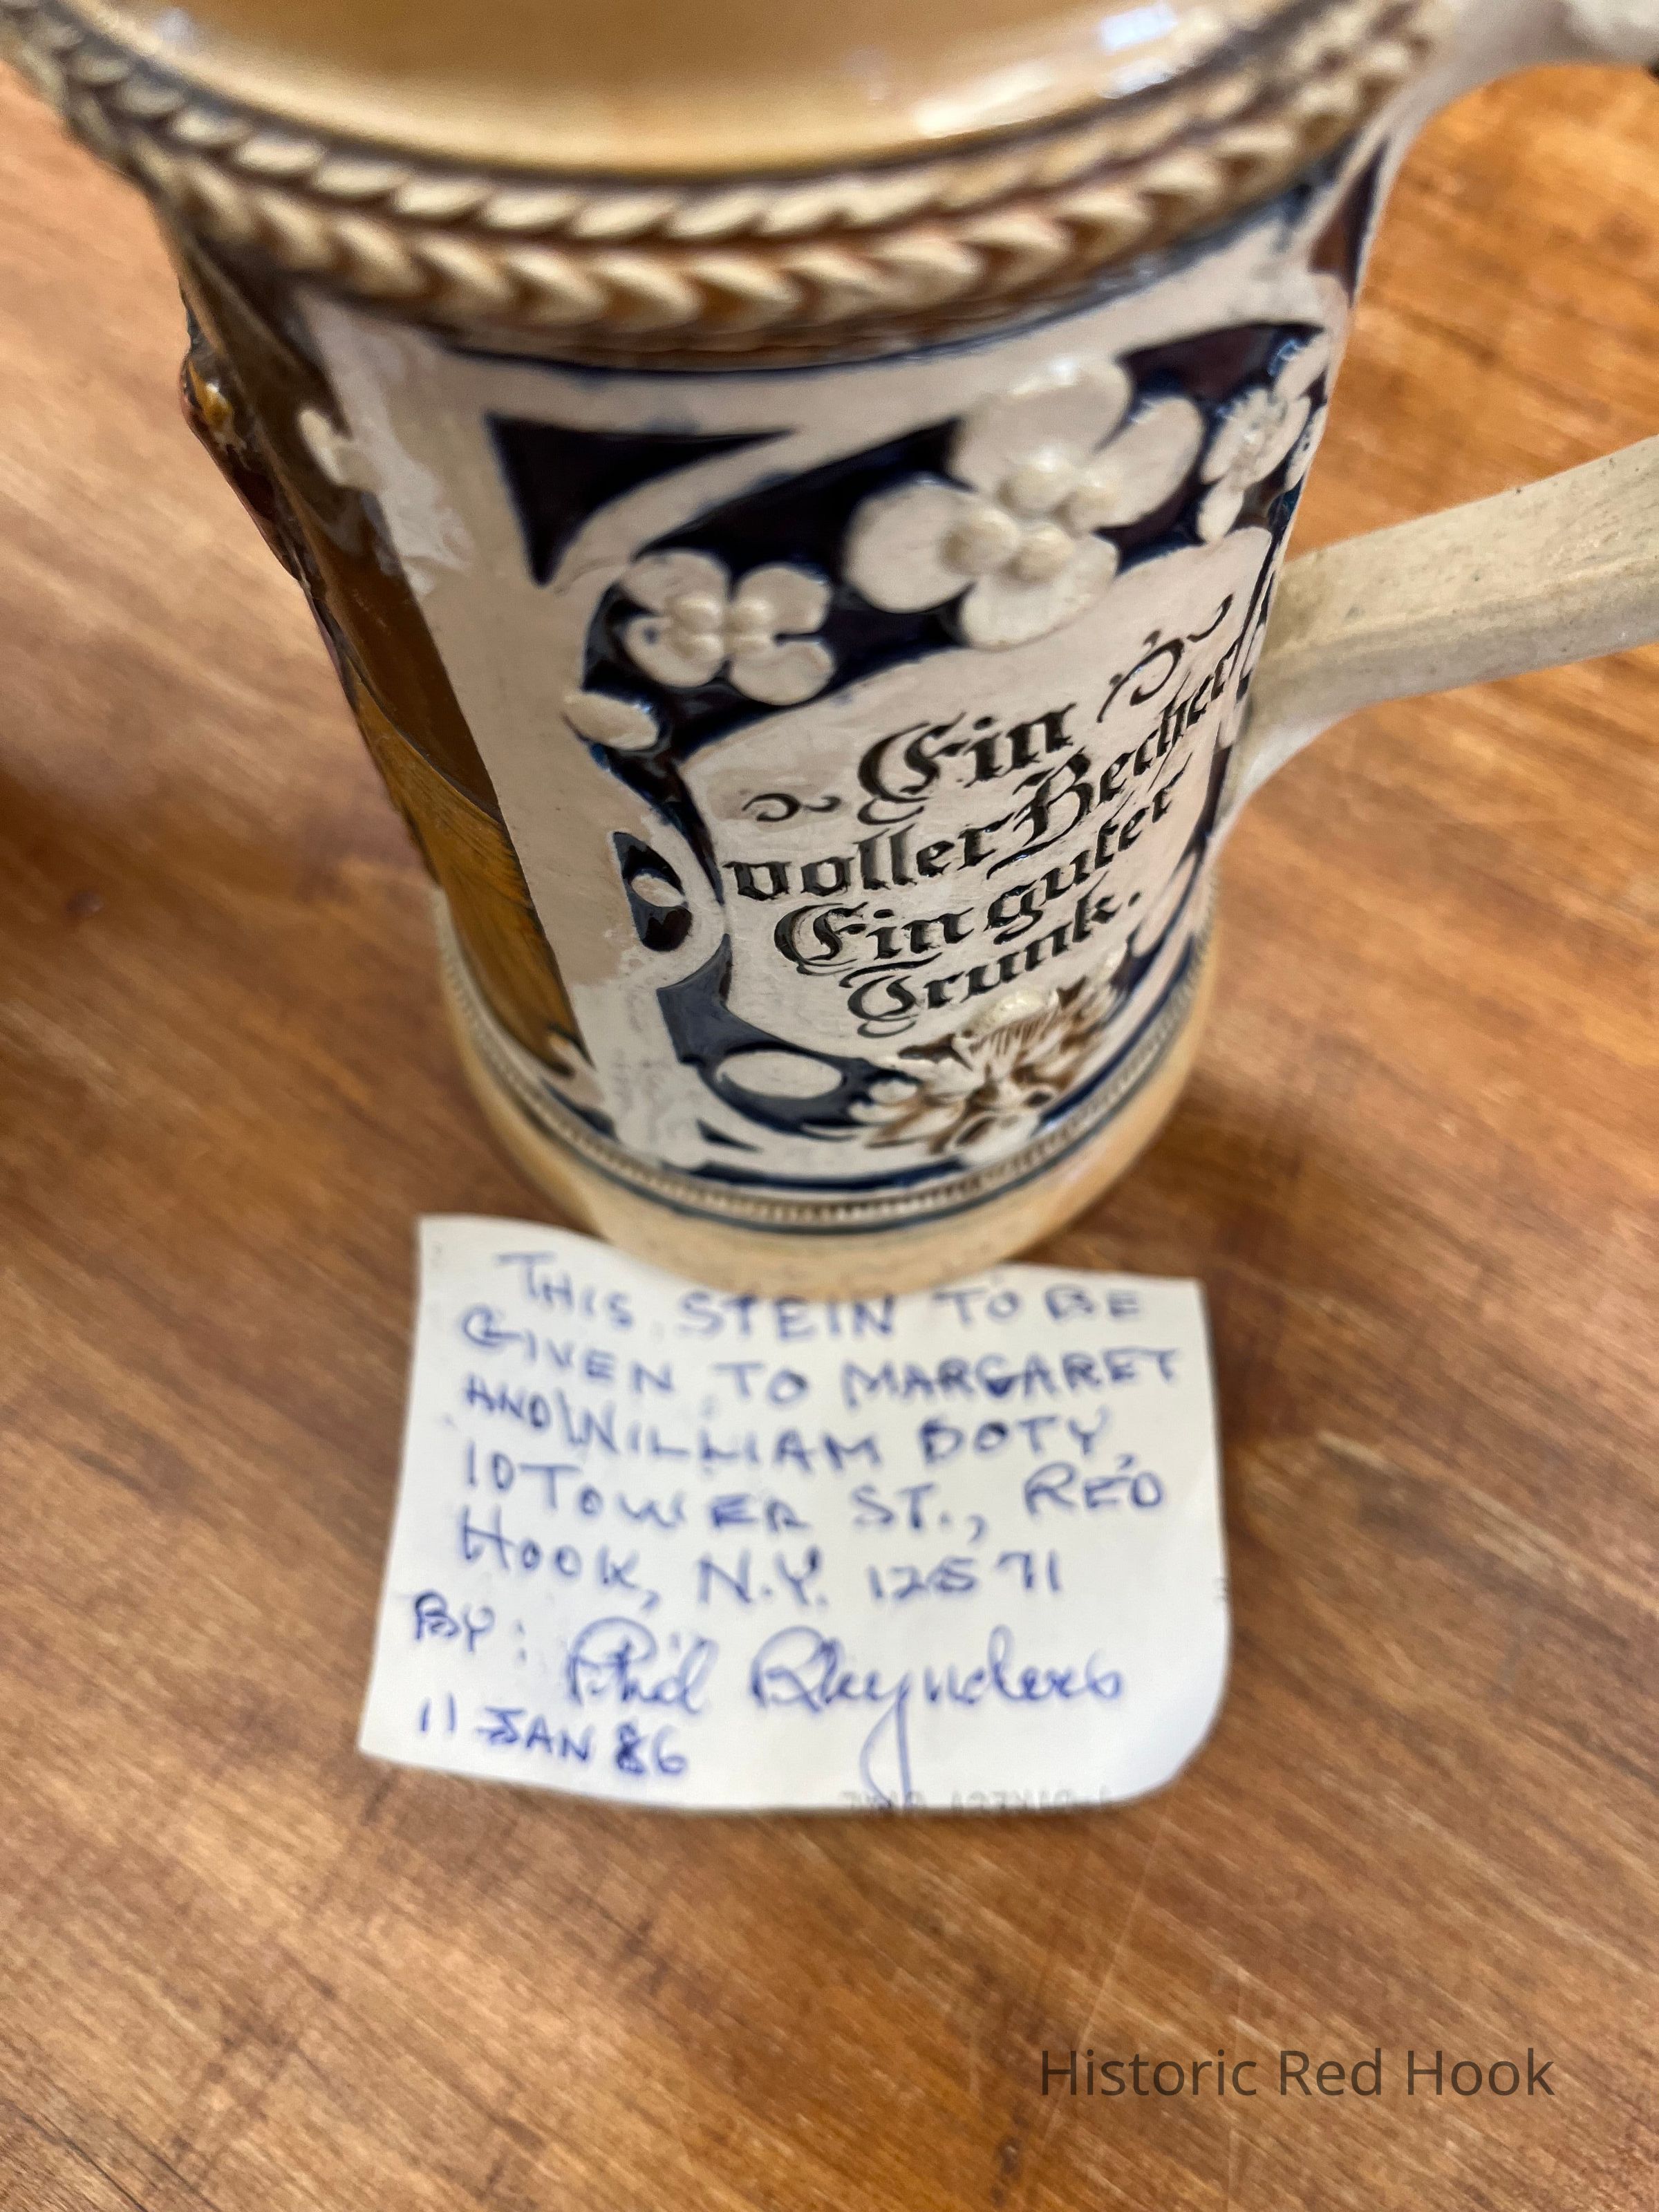 Ein
voller Becher
Ein guter
Trunk.
THIS STEIN TO BE
GIVEN TO MARGARET
AND WILLIAM DOTY
10 TOWER ST., RED
HOOK, N.Y. 12571
BY: Phil Rhynders
11 JAN 86
Historic Red Hook